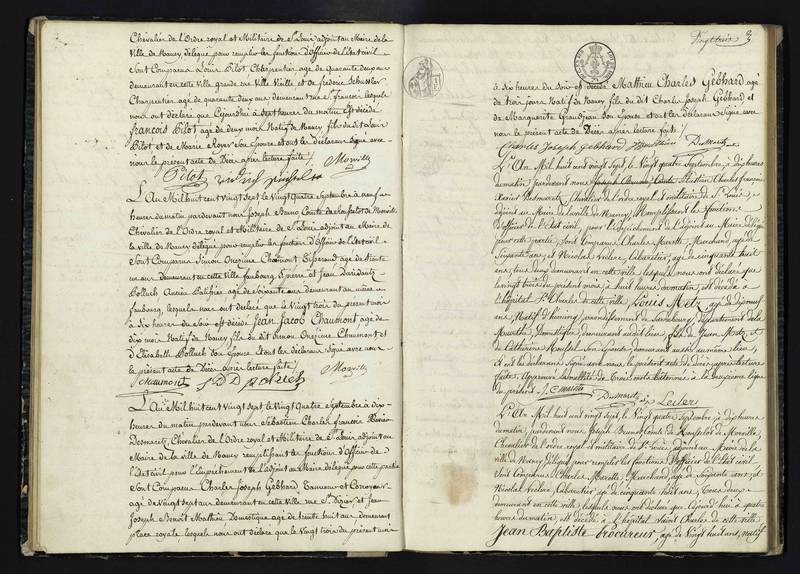 Chevalier de l'Ordre royal et Militaire de St Louis adjoint au Maire de la
Ville de Nancy délégué pour remplir les fonctions d'Officier de l'état civil
Sont Comparus Louis Pilot Charpentier âgé de quarante deux ans
demeurant en cette Ville grande rue Ville Vieille, et de frederic Schussler
Charpentier âgé de quarante deux ans demeurant rue St françois lesquels
nous ont déclaré que Cejourd'hui à sept heures du matin Est décédé
françois Pilot âgé de deux mois Natif de Nancy fils du dit Louis
Pilot et de Marie Royer son Epouse et ont les déclarans Signé avec
nous le présent acte de Décès après lecture faite /. Morville
Pilot
L'An Mil huit cent Vingt sept le Vingt Quatre Septembre à neuf
heures du matin pardevant nous Joseph Bruno Comte de Rousselot de Morville
Chevalier de l'Ordre royal et Militaire de St Louis adjoint au Maire de
la ville de Nancy délégué pour remplir les fonctions d'Officier de l'Etat civil
Sont Comparus Simon Onezime Chaumont Tisserand âgé de trente
un ans Demeurant en cette Ville faubourg St pierre et Jean
Bolluch Ancien âgé de soixante ans demeurant au même
faubourg, lesquels nous ont déclaré que le Vingt trois du présent mois
à dix heures du soir est décédé Jean Jacob Chaumont, âgé de
dix mois Natif de Nancy, fils du dit Simon Onezime Chaumont et
d'Elisabeth Bolluch son Epouse Et ont les déclarans Signé avec nous
le présent acte de Décès après lecture faite / Morville
Chaumont
L'An Mil huit cent Vingt sept le Vingt Quatre Septembre à dix
heures du matin pardevant nous Sébastien Charles françois Xavier
Desmaretz, Chevalier de l'Ordre royal et Militaire de St Louis adjoint au
Maire de la ville de Nancy remplissant les fonctions d'Officier de
l'Etat civil pour l'empêchement de l'adjoint au Maire délégué pour cette partie
Sont Comparus Charles Joseph Gebhard Tanneur et Corroyeur
âgé de Vingt sept ans demeurant en cette Ville rue St Dizier et Jean
Joseph Benoit Mathieu Domestique âgé de trente huit ans demeurant
place royale lesquels nous ont déclaré que le Vingt trois du présent mois
Vingt trois
à dix heures du Soir est décédé Mathieu Charles Gebhard âgé
de trois jours Natif de Nancy fils du dit Charles Joseph Gebhard et
de Marguerite Grandjean son Epouse et ont les déclarans Signé avec
nous le présent acte de Décès après lecture faite /
Charles Joseph Gebhard Mathieu Dsmaretz
L'An Mil huit cent Vingt Sept, le Vingt quatre Septembre, à dix heures
du matin, pardevant nous Sébastien Charles françois
Xavier Desmaretz, Chevalier de l'ordre royal et militaire de St Louis,
adjoint au Maire de la ville de Nancy, Remplissant les fonctions
d'Officier de l'Etat civil, pour l'Empêchement de l'Adjoint au Maire délégué
pour cette partie, Sont Comparus Charles Marotte, Marchand, âgé de
Soixante ans, et Nicolas Leclere, Cabaretier, âgé de cinquante huit
ans, tous deux demeurant en cette ville, lesquels nous ont déclaré que
le vingt trois du présent mois, à huit heures du matin, est décédé à
l'hôpital St Charles de cette ville Louis Metz, âgé de
ans, Natif d'huming, arrondissement de Sarrebourg, département de la
Meurthe, Domestique, demeurant audit lieu, fils de Jean Metz, et
de Catherine son Epouse, demeurant aussi au même lieu,
et ont les déclarans Signé avec nous le présent acte de décès après lecture
faite, Approuvé la de trois mots la deuxième ligne
du présent /. C marotte
Dsmaretz Leclere
L'An Mil huit cent Vingt sept, le Vingt quatre Septembre à dix heures
du matin, pardevant nous Joseph Bruno Comte de Rousselot de Morville,
Chevalier de l'ordre royal et militaire de St Louis, adjoint au Maire de la
ville de Nancy délégué pour remplir les fonctions d'Officier de l'Etat civil
Sont Comparus Charles Marotte, Marchand, âgé de Soixante ans, et
Nicolas Leclere, Cabaretier âgé de cinquante huit ans, tous deux
demeurant en cette ville, lesquels nous ont déclaré que Cejourd'hui à quatre
heures du matin, est décédé à l'hôpital Saint Charles de cette ville
Jean Baptiste Procureur, âgé de Vingt huit ans, natif